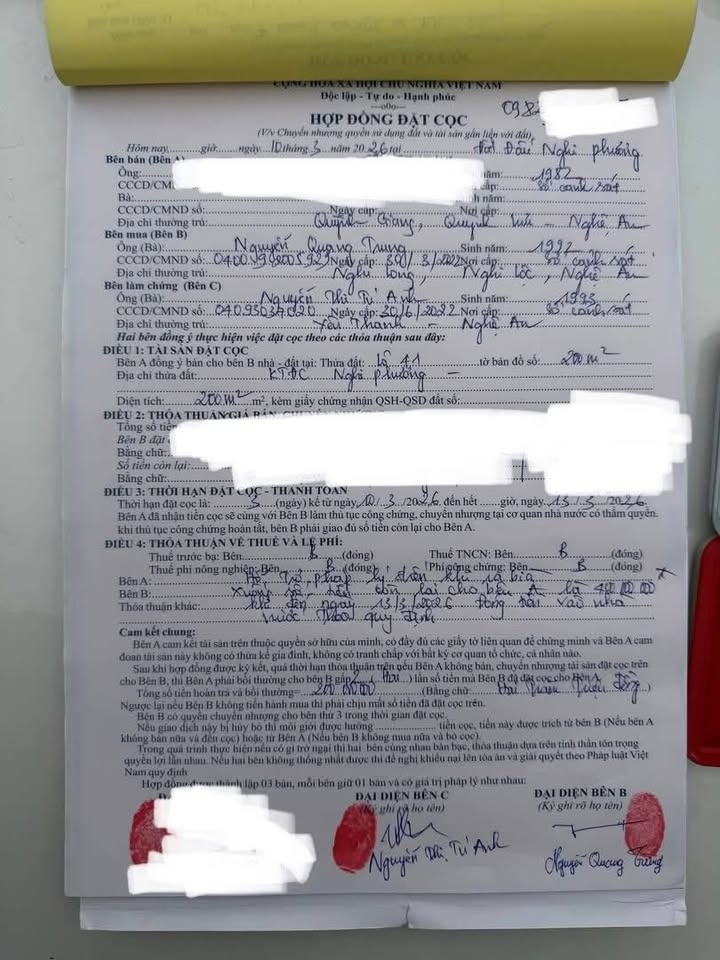 CỘNG HÒA XÃ HỘI CHỦ NGHĨA VIỆT NAM
Độc lập - Tự do - Hạnh phúc
---o0o---
098
HỢP ĐỒNG ĐẶT CỌC
(V/v Chuyển nhượng quyền sử dụng đất và tài sản gắn liền với đất)
Hôm nay,........giờ......ngày 10 tháng 3 năm 2026 tại Đất Đấu Nghi Phương
Bên bán (Bên A)
Ông: năm: 1982
CCCD/CM số cảnh sát
Bà: năm:
CCCD/CMND số: Ngày cấp: Nơi cấp:
Địa chỉ thường trú: Quỳnh Giang, Quỳnh Lưu - Nghệ An
Bên mua (Bên B)
Ông (Bà): Nguyễn Quang Trung Sinh năm: 1992
CCCD/CMND số: Ngày cấp: Nơi cấp: số cảnh sát
Địa chỉ thường trú: Nghi Long, Nghi Lộc, Nghệ An
Bên làm chứng (Bên C)
Ông (Bà): Nguyễn Thị Tú Anh Sinh năm: 1993
CCCD/CMND số: Ngày cấp: 30/6/2022 Nơi cấp: số cảnh sát
Địa chỉ thường trú: Yên Thành - Nghệ An
Hai bên đồng ý thực hiện việc đặt cọc theo các thỏa thuận sau đây:
ĐIỀU 1: TÀI SẢN ĐẶT CỌC
Bên A đồng ý bán cho bên B nhà - đất tại: Thửa đất: Lô 41 tờ bản đồ số: 200 m²
Địa chỉ thửa đất: Nghi Phương -
Diện tích: 200 m² m², kèm giấy chứng nhận QSH-QSD đất số:
ĐIỀU 2: THỎA THUẬN GIÁ BÁN, CHUYỂN
Tổng số tiền
Bên B đặt
Bằng chữ:
Số tiền còn lại:
Bằng chữ:
ĐIỀU 3: THỜI HẠN ĐẶT CỌC - THANH TOÁN
Thời hạn đặt cọc là: 3 (ngày) kể từ ngày 10/3/2026 đến hết ......giờ, ngày 13/3/2026
Bên A đã nhận tiền cọc sẽ cùng với Bên B làm thủ tục công chứng, chuyển nhượng tại cơ quan nhà nước có thẩm quyền.
khi thủ tục công chứng hoàn tất, bên B phải giao đủ số tiền còn lại cho Bên A.
ĐIỀU 4: THỎA THUẬN VỀ THUẾ VÀ LỆ PHÍ:
Thuế trước bạ: Bên B (đóng) Thuế TNCN: Bên B (đóng)
Thuế phi nông nghiệp: Bên B (đóng) Phí công chứng: Bên B (đóng)
Bên A: Hỗ trợ pháp lý đến khi ra bìa
Bên B: còn lại cho bên A là
Thỏa thuận khác: đến ngày 13/3/2026 đóng vào nhà
nước theo quy định
Cam kết chung:
Bên A cam kết tài sản trên thuộc quyền sở hữu của mình, có đầy đủ các giấy tờ liên quan để chứng minh và Bên A cam
đoan tài sản này không có thừa kế gia đình, không có tranh chấp với bất kỳ cơ quan tổ chức, cá nhân nào.
Sau khi hợp đồng được ký kết, quá thời hạn thỏa thuận trên nếu Bên A không bán, chuyển nhượng tài sản đặt cọc trên
cho Bên B, thì Bên A phải bồi thường cho bên B gấp 2 (Hai) lần số tiền mà Bên B đã đặt cọc cho Bên A.
Tổng số tiền hoàn trả và bồi thường= 200 000 000 (Bằng chữ: Hai Trăm Triệu đồng)
Ngược lại nếu Bên B không tiến hành mua thì phải chịu mất số tiền đã đặt cọc trên.
Bên B có quyền chuyển nhượng cho bên thứ 3 trong thời gian đặt cọc.
Nếu giao dịch này bị hủy bỏ thì môi giới được hưởng ........ tiền cọc, tiền này được trích từ bên B (Nếu bên A
không bán nữa và đền cọc) hoặc từ Bên A (Nếu bên B không mua nữa và bỏ cọc).
Trong quá trình thực hiện nếu có gì trở ngại thì hai bên cùng nhau bàn bạc, thỏa thuận dựa trên tinh thần tôn trọng
quyền lợi lẫn nhau. Nếu hai bên không thống nhất được thì đề nghị khiếu nại lên tòa án và giải quyết theo Pháp luật Việt
Nam quy định
Hợp đồng được thành lập 03 bản, mỗi bên giữ 01 bản và có giá trị pháp lý như nhau:
ĐẠI DIỆN BÊN C ĐẠI DIỆN BÊN B
(Ký ghi rõ họ tên) (Ký ghi rõ họ tên)
Nguyễn Thị Tú Anh Nguyễn Quang Trung